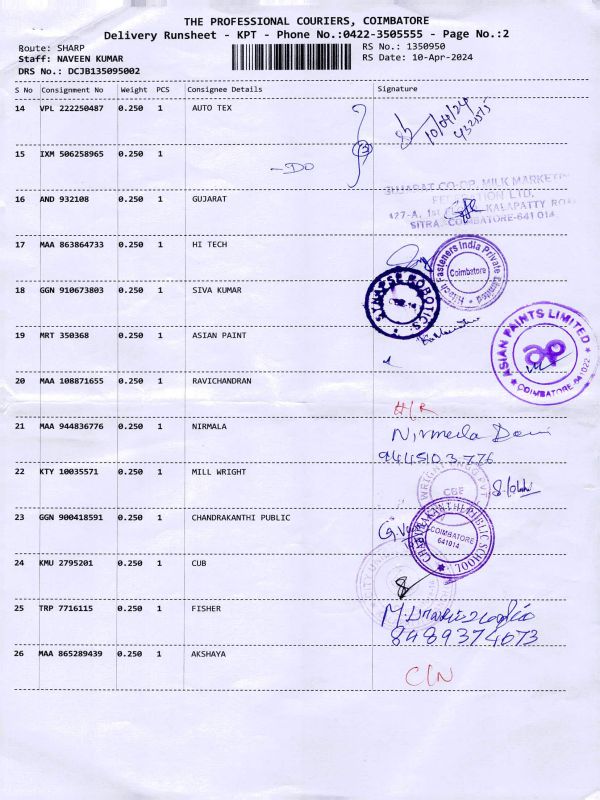 THE PROFESSIONAL COURIERS, COIMBATORE
Delivery Runsheet - KPT - Phone No.:0422-3505555 - Page No.:2
Route: SHARP RS No.: 1350950
Staff: NAVEEN KUMAR RS Date: 10-Apr-2024
DRS No.: DCJB135095002
S No Consignment No Weight PCS Consignee Details Signature
14 VPL 222250487 0.250 1 AUTO TEX
10/04/24
15 IXM 506258965 0.250 1
-DO
16 AND 932108 0.250 1 GUJARAT
GUJARAT CO-OP. MILK MARKETING
FEDERATION LTD.
KALAPATTY ROAD
SITRA, COIMBATORE-641 014
17 MAA 863864733 0.250 1 HI TECH
Hitech Fasteners India Private Limited
Coimbatore
18 GGN 910673803 0.250 1 SIVA KUMAR
SYNAPSE ROBOTICS
CBE-14
19 MRT 350368 0.250 1 ASIAN PAINT
ASIAN PAINTS LIMITED
ap
COIMBATORE-641022
20 MAA 108871655 0.250 1 RAVICHANDRAN
H/R
21 MAA 944836776 0.250 1 NIRMALA
Nirmala Devi
944510 3 776
22 KTY 10035571 0.250 1 MILL WRIGHT
CBE
23 GGN 900418591 0.250 1 CHANDRAKANTHI PUBLIC
CHANDRAKANTHI PUBLIC SCHOOL
COIMBATORE
641014
24 KMU 2795201 0.250 1 CUB
25 TRP 7716115 0.250 1 FISHER
8489374673
26 MAA 865289439 0.250 1 AKSHAYA
C/N